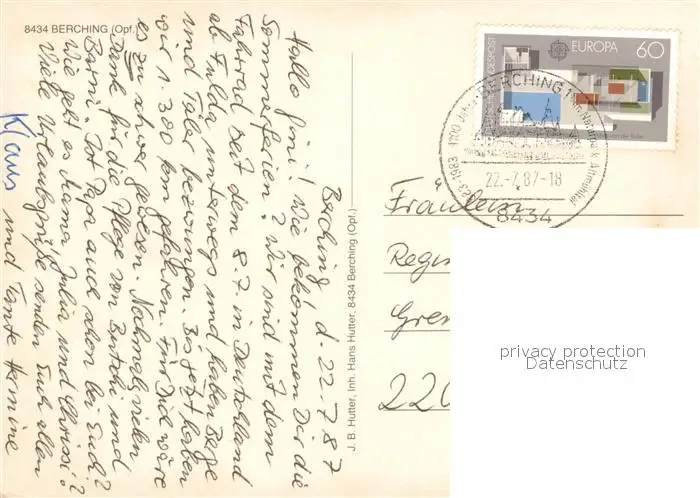 8434 BERCHING (Opf.)
Berching, d. 22.7.87
Hallo Gini! Wie bekommen Dir die
Sommerferien? Wir sind mit dem
Fahrrad seit dem 8.7 in Deutschland
ab Fulda unterwegs und haben Berge
und Täler bezwungen. Bis jetzt haben
wir 1.300 km gefahren. Für Did wäre
es zu schwer gewesen. Nochmals vielen
Dank für die Pflege von Butschi und
Barni. Ist Papa auch schon bei Euch?
Wie geht es Mama, Julia und Chrissi?
Viele Urlaubsgrüße senden Euch allen
Klaus und Tante Hermine
J. B. Hutter, Inh. Hans Hutter, 8434 Berching (Opf.)
BUNDESPOST
EUROPA 60
883-1983 1100 Jahre BERCHING im Naturpark Altmühltal
22.-7.87-18
8434
Fräulein
Regin
Gre
220
privacy protection
Datenschutz